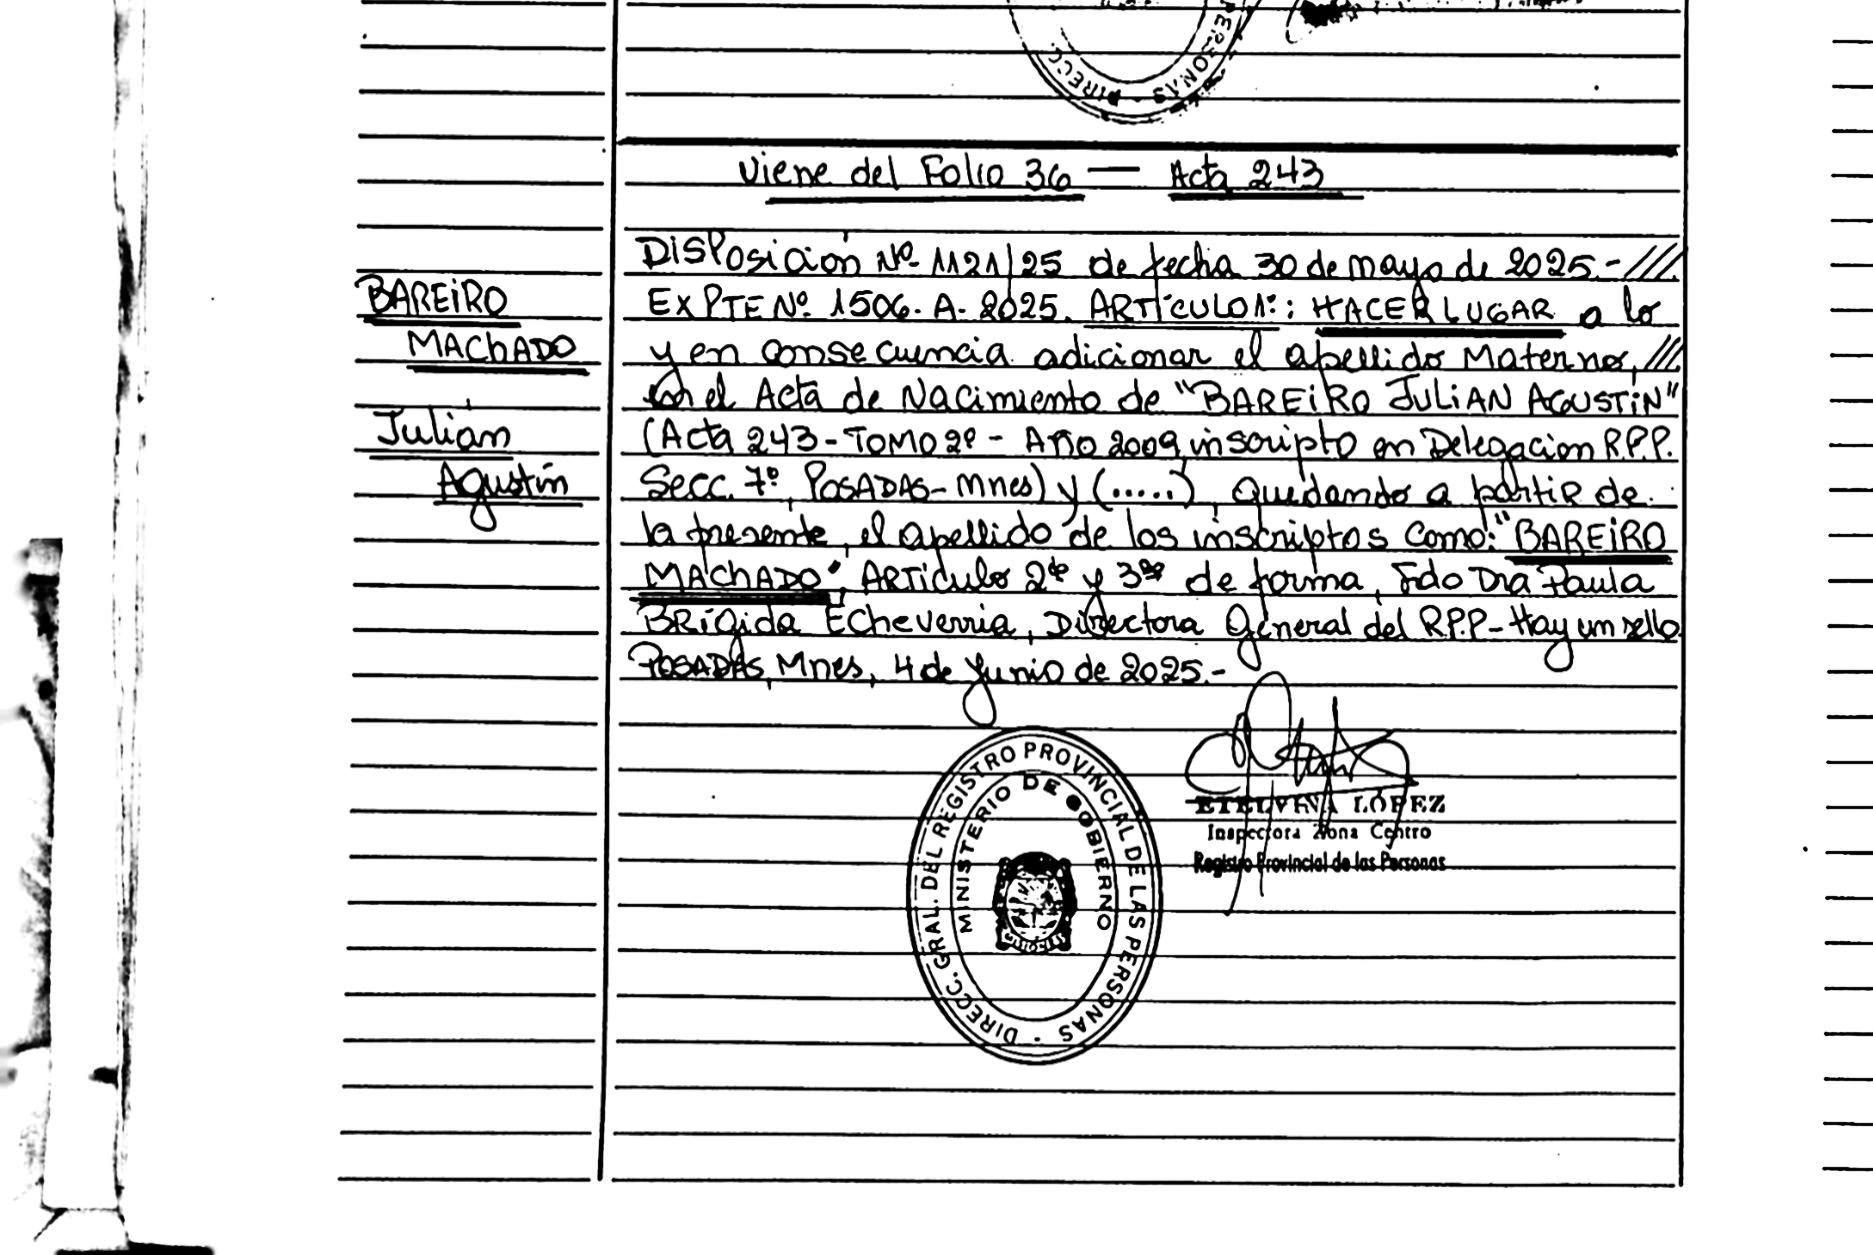 DIRECC.
PERSONAS
Viene del Folio 36 — Acta 243
DISPosición Nº 1121/25 de fecha 30 de mayo de 2025.- ///
BAREIRO
EXPTE Nº 1506-A-2025. ARTÍCULO 1º: HACER LUGAR a lo
MAChADO
y en consecuencia adicionar el apellido Materno, ///
en el Acta de Nacimiento de "BAREIRO JULIAN AGUSTíN"
Julián
(Acta 243 - TOMO 2º - Año 2009, inscripto en Delegacion R.P.P.
Agustín
Secc. 7º, POSADAS - Mnes) y (.....), quedando a partir de
la presente, el apellido de los inscriptos como: "BAREIRO
MAChADO", ARTículo 2do y 3ro de forma, Fdo Dra Paula
BRígida Echeverria, Directora General del R.P.P - Hay un sello
POSADAS, Mnes, 4 de Junio de 2025.-
DIRECC. GRAL. DEL REGISTRO PROVINCIAL DE LAS PERSONAS -
MINISTERIO DE GOBIERNO
ETELVINA LÓPEZ
Inspectora Zona Centro
Registro Provincial de las Personas